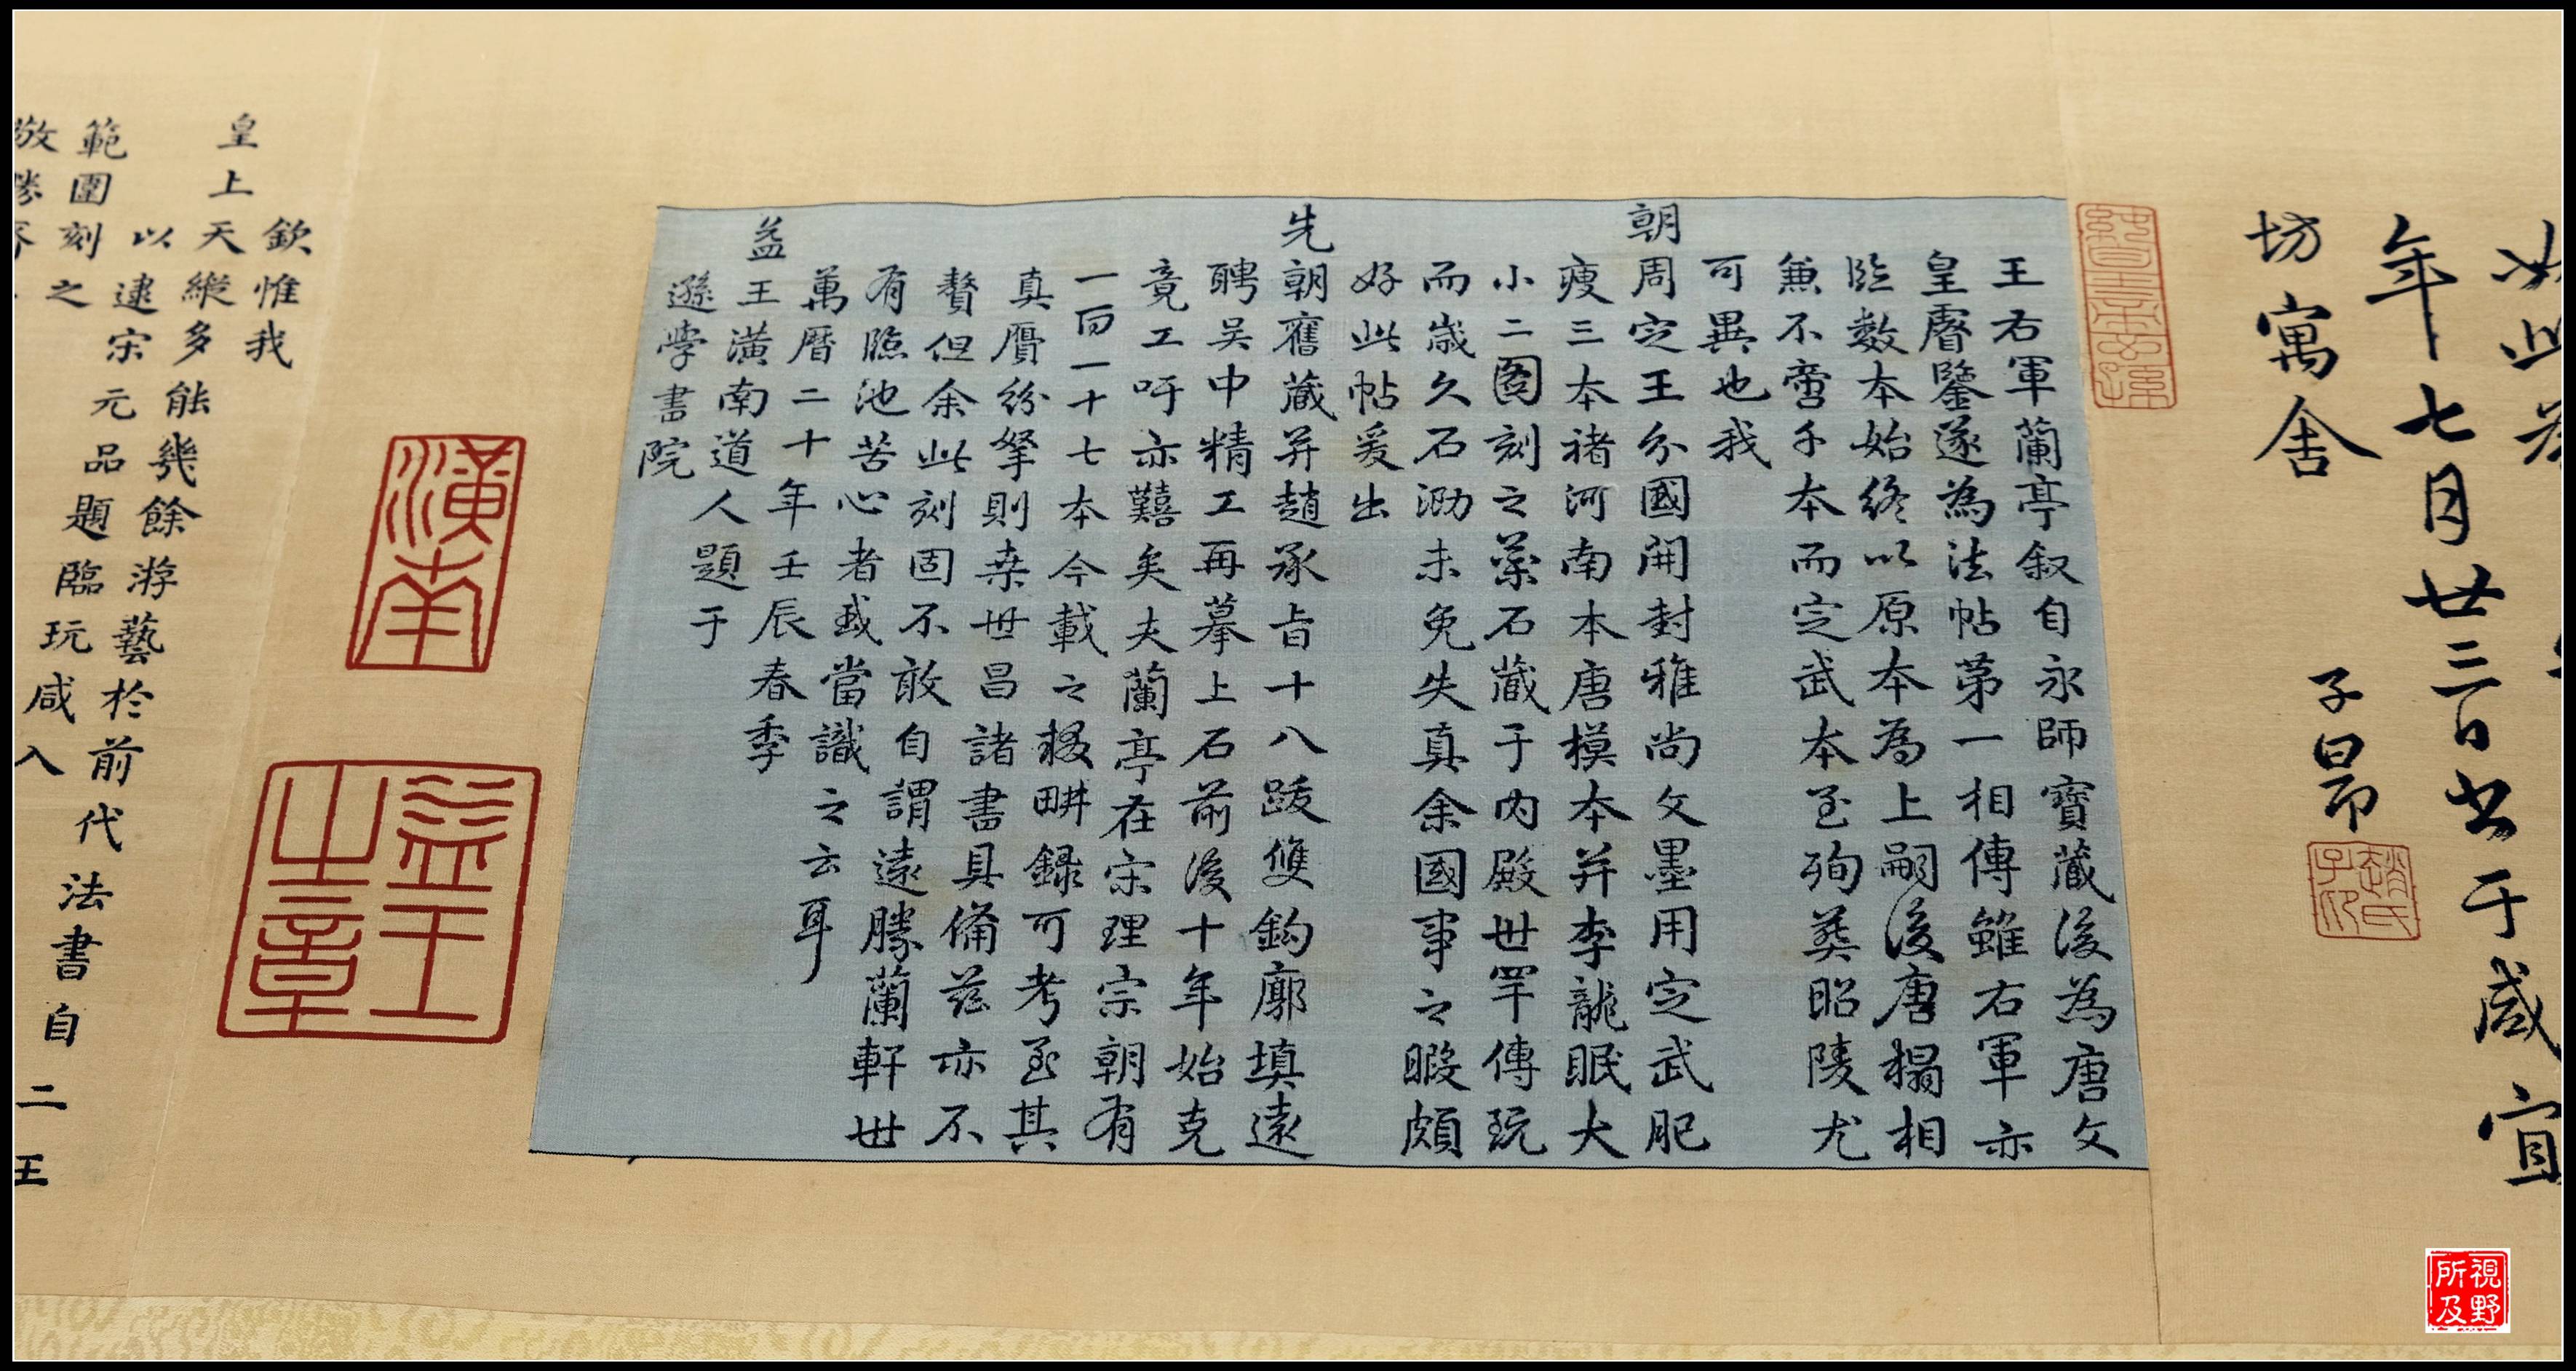 年七月廿三日書于咸宜
坊寓舍
子昂
趙氏子印
王右軍蘭亭叙自永師寶藏後為唐文
皇睿鑒遂為法帖第一相傳雖右軍亦
臨數本始終以原本為上嗣後唐榻相
兼不啻千本而定武本至殉葬昭陵尤
可異也我
朝周定王分國開封雅尚文墨用定武肥
瘦三本褚河南本唐模本并李龍眠大
小二圖刻之藥石藏于內殿世罕傳玩
而歲久石泐未免失真余國事之暇頗
好此帖爰出
先朝舊藏并趙承旨十八跋雙鈎廓填遠
聘吳中精工再摹上石前後十年始克
竟工吁亦難矣夫蘭亭在宋理宗朝有
一百一十七本今載之輟畊錄可考至其
真贋紛拏則桒世昌諸書具備茲亦不
贅但余此刻固不敢自謂遠勝蘭軒世
有臨池苦心者或當識之云耳
萬曆二十年壬辰春季
益王潢南道人題于
遜學書院
潢南
益王之章
欽惟我
皇上天縱多能幾餘游藝於前代法書自二王
以逮宋元品題臨玩咸入
範圍刻之
視野所及